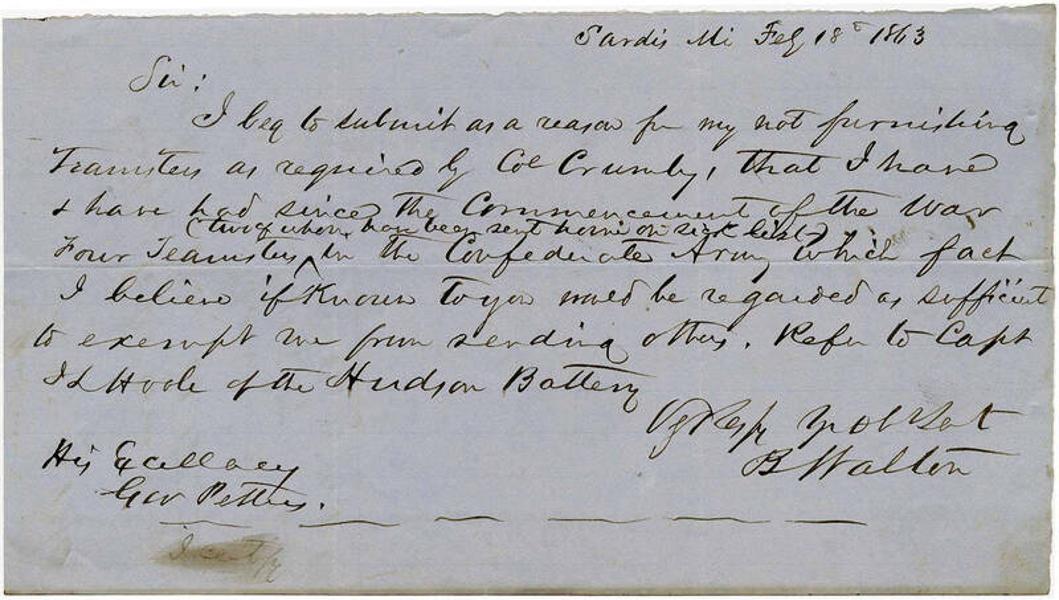 Sardis Mi Feb 18th 1863
Sir:
I beg to submit as a reason for my not furnishing
Teamsters as required by Col Crumby, that I have
& have had since the Commencement of the War
(two of whom have been sent home on sick list)
Four Teamsters ^ in the Confederate Army which fact
I believe if Known to you would be regarded as sufficient
to exempt me from sending others. Refer to Capt
J L Hoole of the Hudson Battery
Vy Resfy Yr Obt Svt
B Walton
His Excellency
Gov Pettus.
I certify